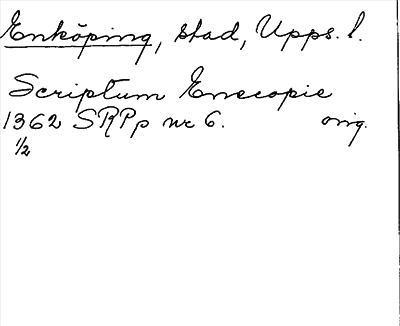 Enköping, stad, Upps. l.
Scriptum Enecopie
1362 SRPp nr 6. orig.
1/2